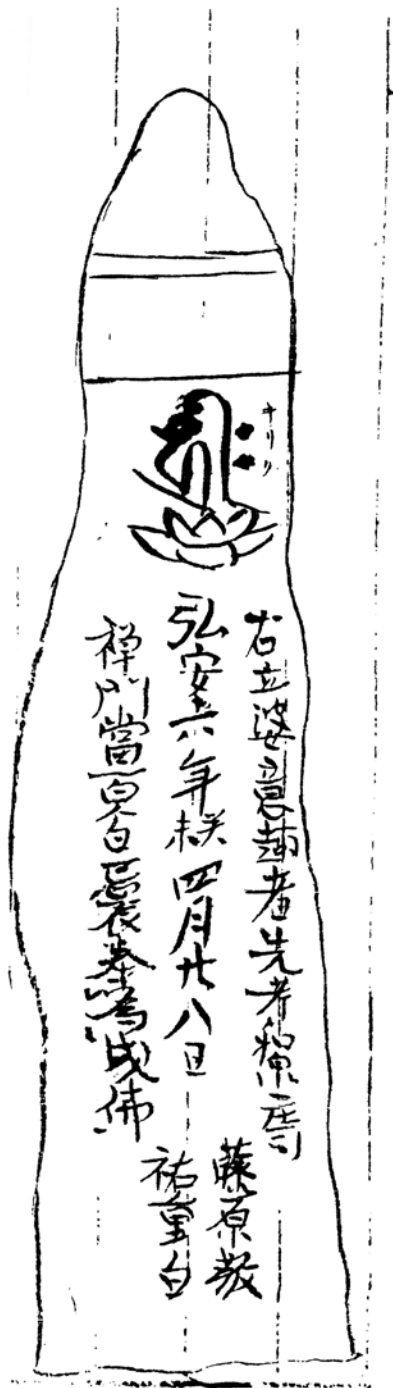 キリク
右立婆意趣者先考
弘安六年癸未四月廿八日
禅門當百日忌辰奉為成佛
藤原敬
祐重白